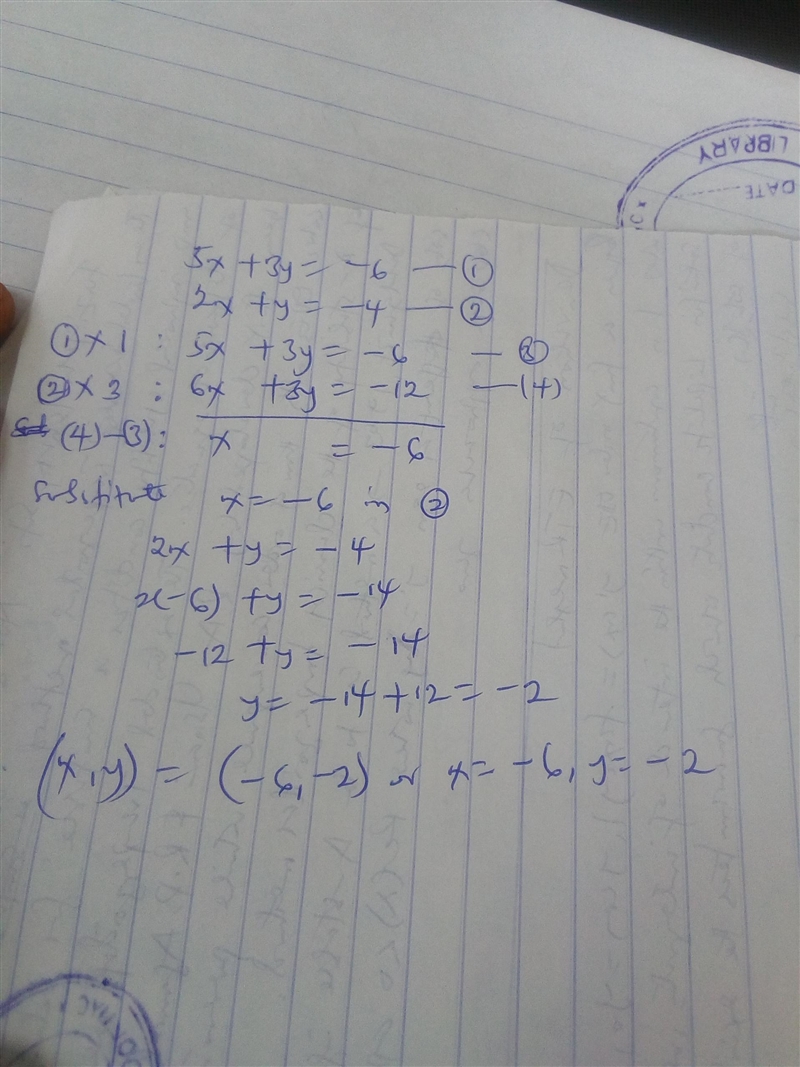 LIBRARY
DATE
5x + 3y = -6 — ①
2x + y = -4 — ②
① X 1 : 5x + 3y = -6 — ③
② X 3 : 6x + 3y = -12 — (4)
(4) - (3) : x = -6
Substitute x = -6 in ②
2x + y = -4
2(-6) + y = -14
-12 + y = -14
y = -14 + 12 = -2
(x, y) = (-6, -2) or x = -6, y = -2